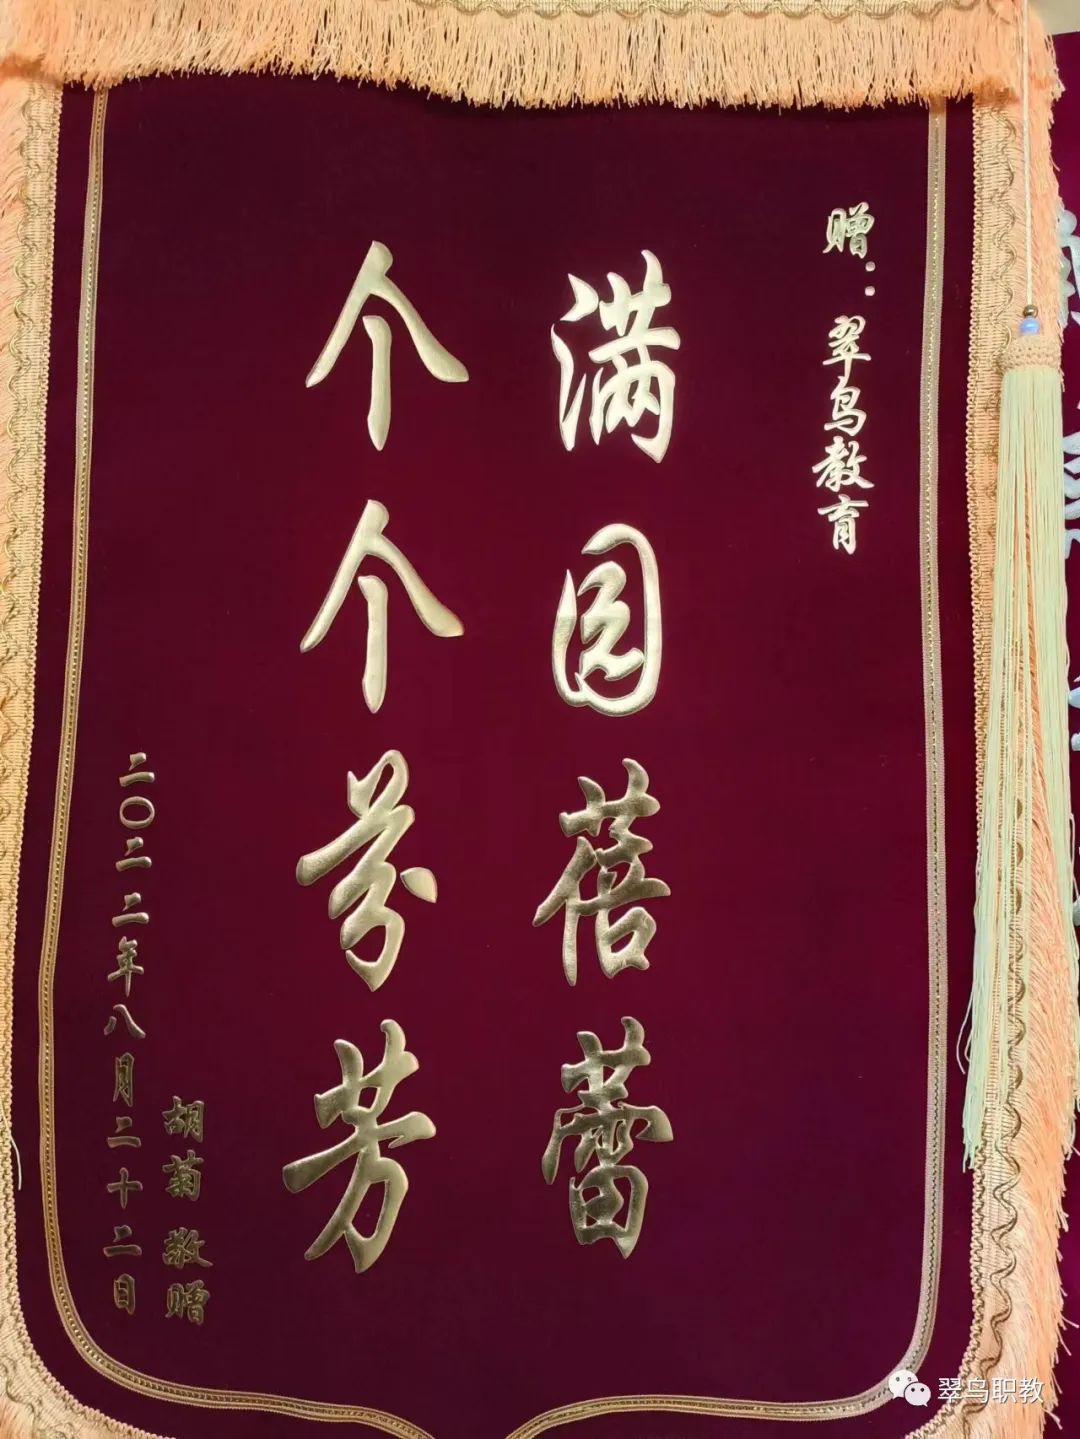 赠：翠鸟教育
满园蓓蕾
个个芬芳
胡菊 敬赠
二〇二二年八月二十二日
翠鸟职教